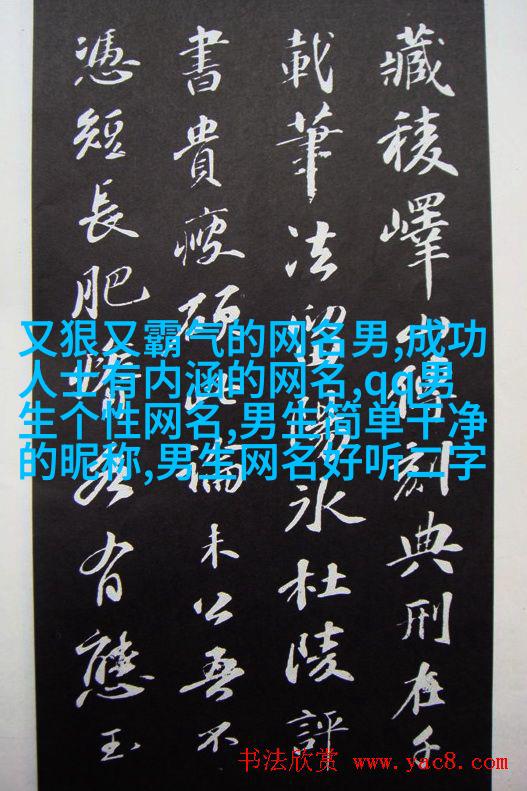 藏稜嶧山傳刻典刑在千
載筆法留陽冰杜陵評
書貴瘦硬此論未公吾不
憑短長肥瘠各有態玉
又狠又霸气的网名男,成功
人士有内涵的网名,qq男
生个性网名,男生简单干净
的昵称,男生网名好听二字
书法欣赏 www.yac8.com